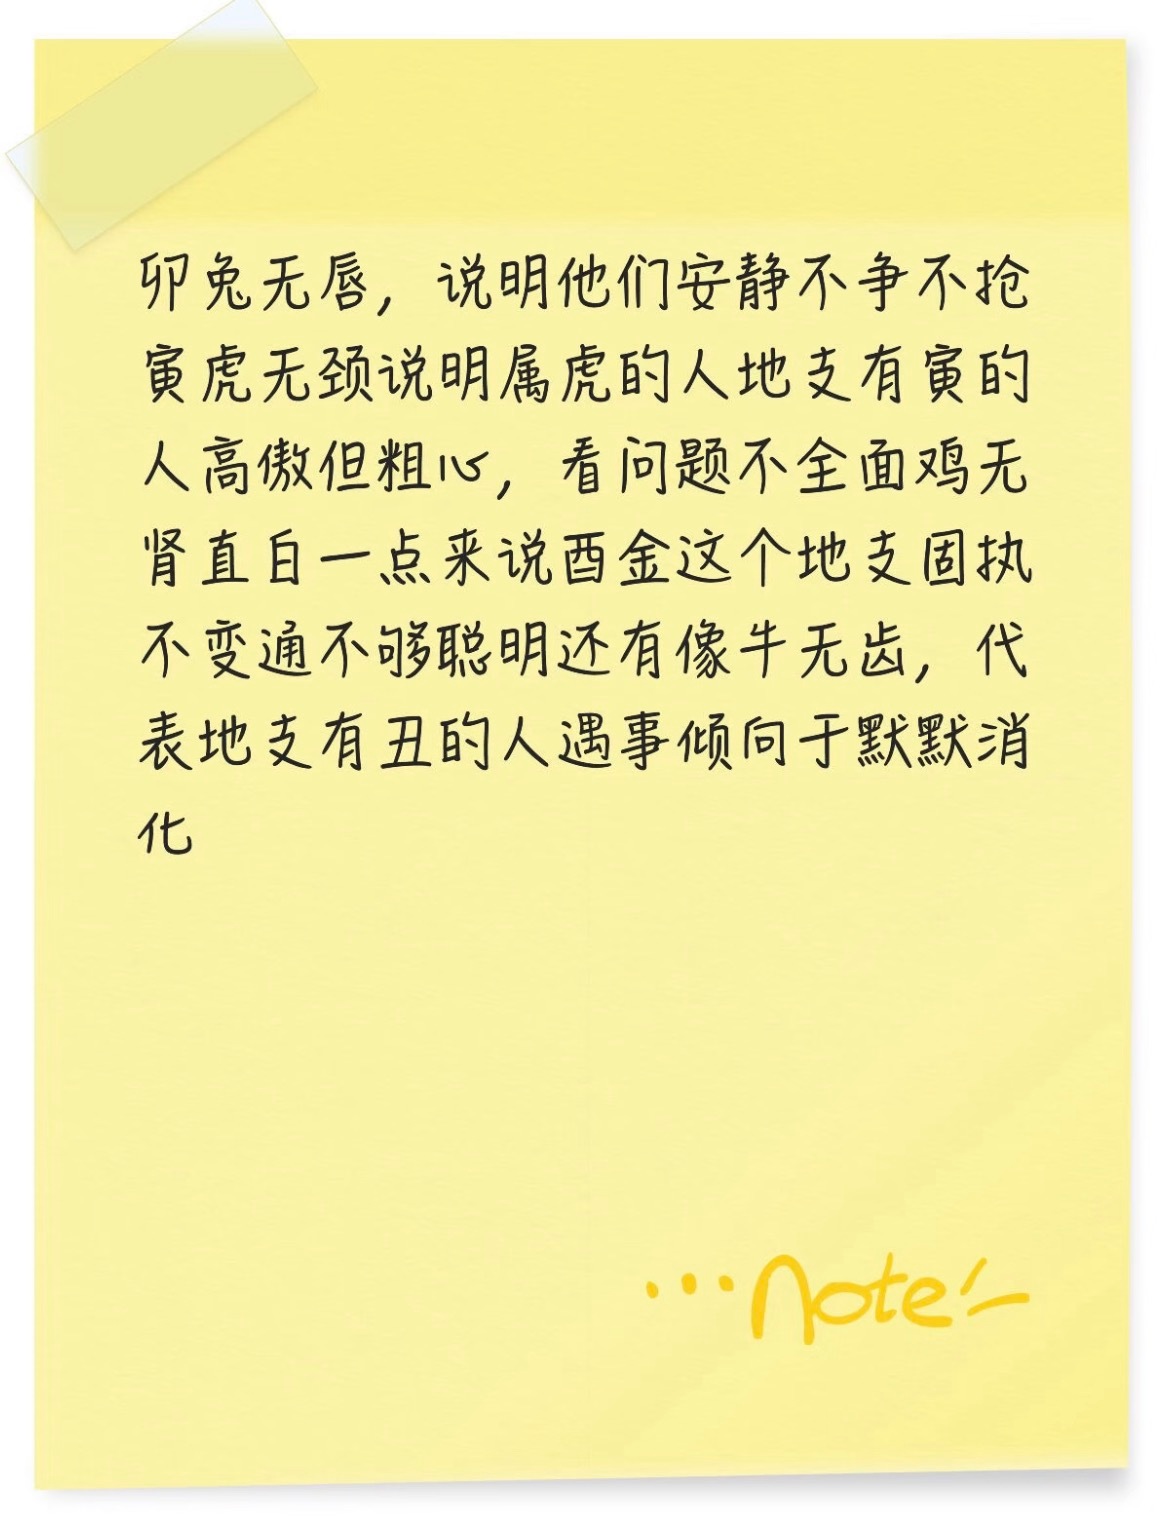 卯兔无唇，说明他们安静不争不抢
寅虎无颈说明属虎的人地支有寅的
人高傲但粗心，看问题不全面鸡无
肾直白一点来说酉金这个地支固执
不变通不够聪明还有像牛无齿，代
表地支有丑的人遇事倾向于默默消
化
...note